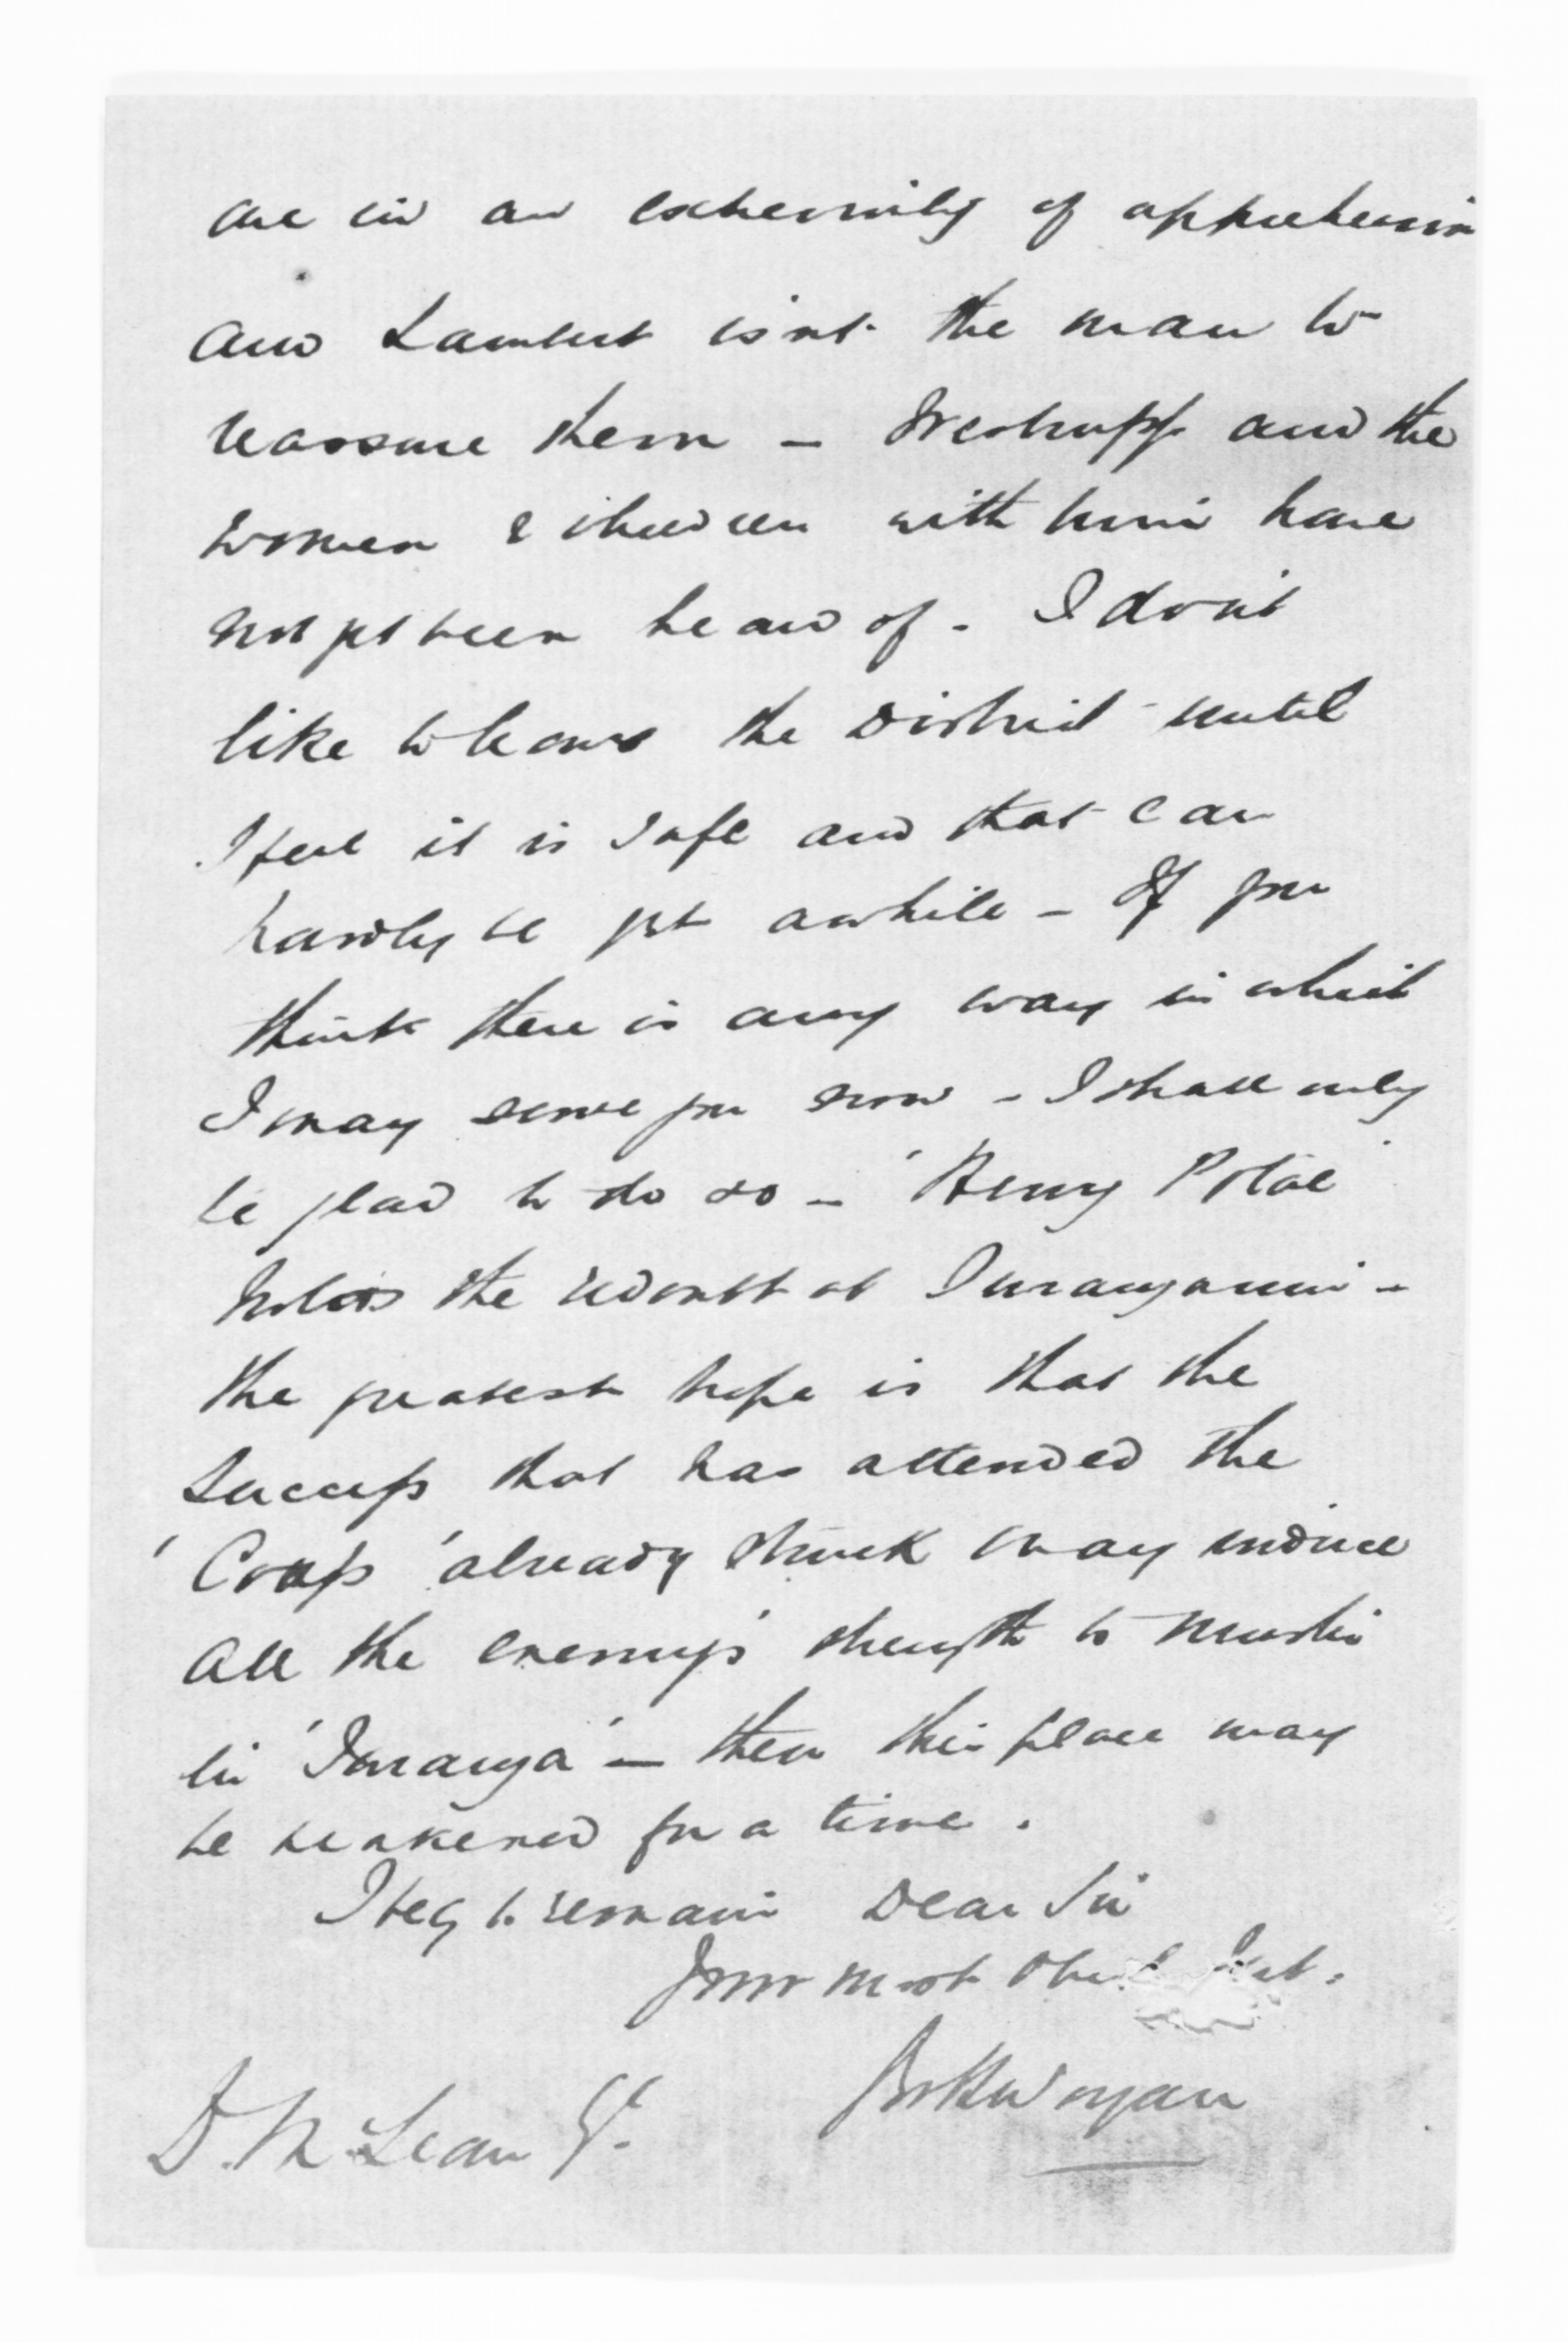 are in an extremity of apprehension
and Lambert isn't the man to
reassure them — Westrupp and the
women & children with him have
not yet been heard of. I don't
like to leave the District until
I feel it is safe and that can
hardly be yet awhile — If you
think there is any way in which
I may serve you now — I shall only
be glad to do so — 'Henry Potae'
holds the redoubt at Turanganui —
the greatest hope is that the
success that has attended the
'Coup' already struck may induce
all the enemy's strength to muster
in 'Turanga' — then this place may
be weakened for a time.
I beg to remain Dear Sir
Your most Obed Svt.
Wyan
D. McLean Esq.